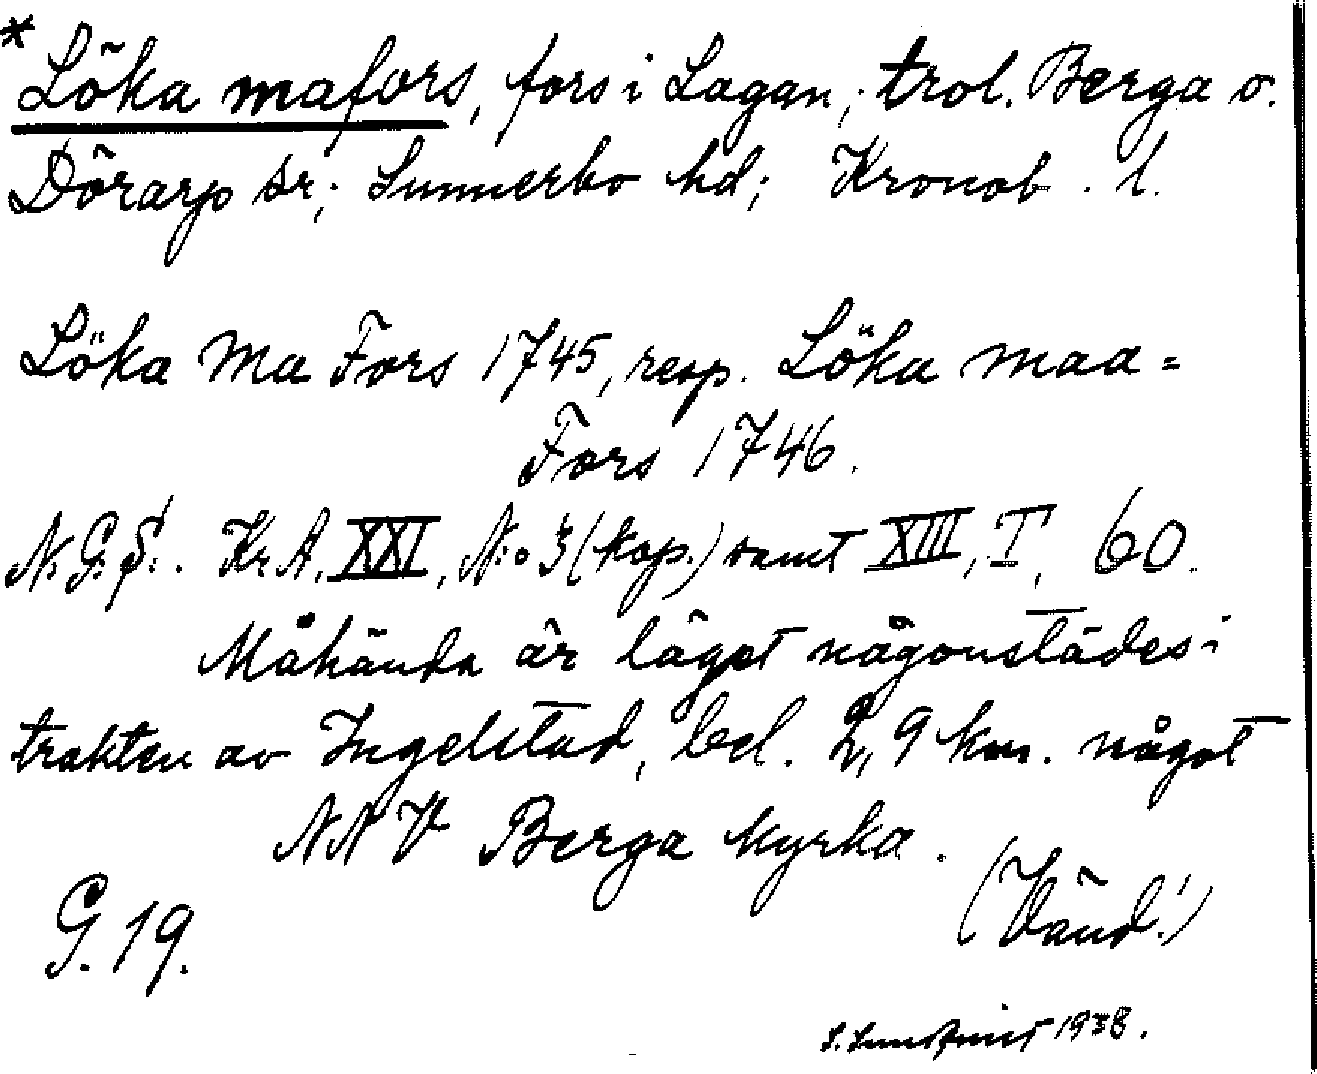 * Löka mafors, fors i Lagan; trol. Berga o.
Dörarp sr; Sunnerbo hd; Kronob. l.
Löka Ma Fors 1745, resp. Löka maa=
Fors 1746.
N. G. S!. Kr. A. XXI, N:o 3 (kop.) samt XIII, I, 60.
Måhända är läget någonstädes i
trakten av Ingelstad, bel. 2,9 km. något
NNV Berga kyrka.
(Vänd!)
G. 19.
S. Lundquist 1938.